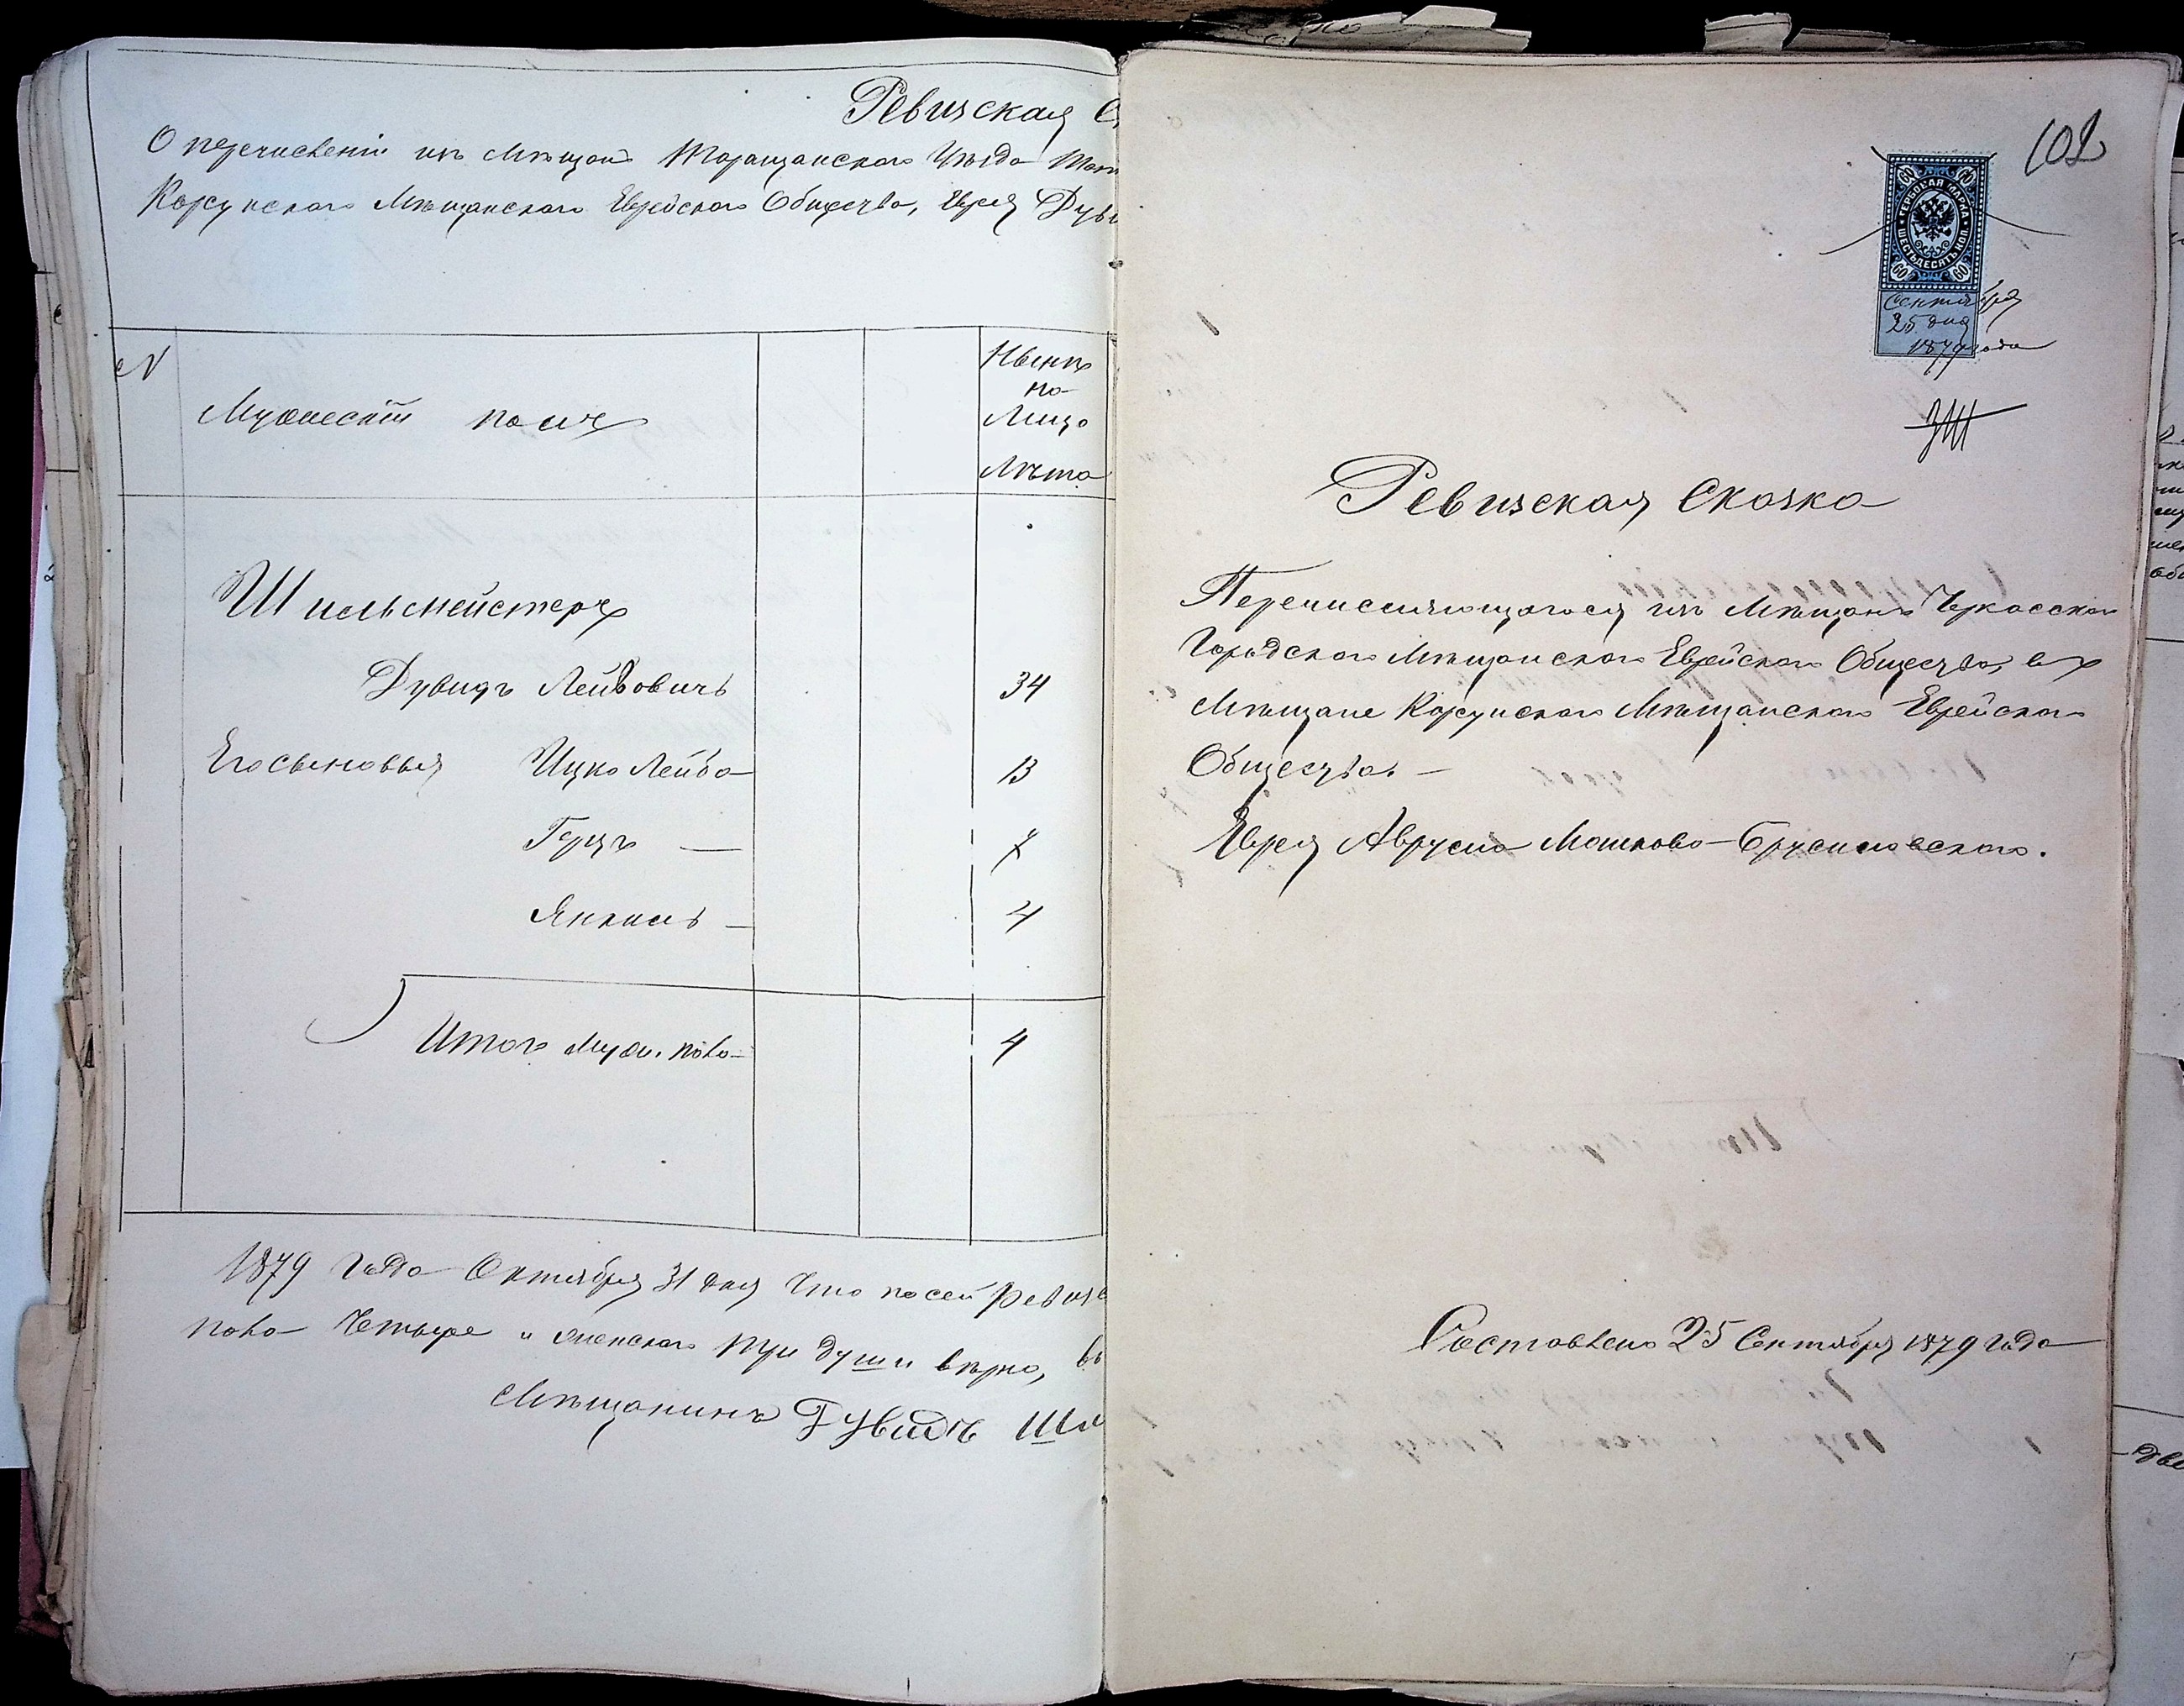 Ревизская С
О перечисленіи изъ Мѣщанъ Таращанскаго Уѣзда
Корсунскаго Мѣщанскаго Еврейскаго Общества, Еврея Дуви
N
Мужескій полъ
Нынѣ
на
Лицо
Лѣта
Шпильмейстеръ
Дувидъ Лейбовичъ
34
Его сыновья Ицко Лейба
13
Герцъ —
7
Янкель —
4
Итого муж. пола
4
1879 года Октября 31 дня Что по сей Ревизс
пола Четыре и женскаго три души вѣрно, въ
Мѣщанинъ Дувидъ Шп
102
60 60
ГЕРБОВАЯ МАРКА
ШЕСТЬДЕСЯТЪ КОП.
60 60
Сентября
25 дня
1879 года
Ревизская Сказка
Перечисляющагося изъ Мѣщанъ Черкасскаго
Городскаго Мѣщанскаго Еврейскаго Общества, въ
Мѣщане Корсунскаго Мѣщанскаго Еврейскаго
Общества. —
Еврея Аврума Мошкова Брусиловскаго.
Составлено 25 Сентября 1879 года